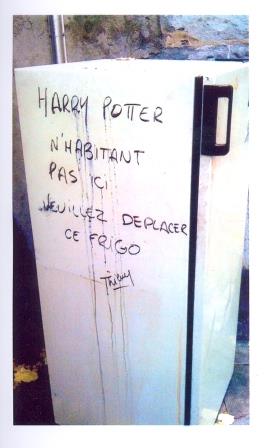 HARRY POTTER
N'HABITANT
PAS ICI
VEUILLEZ DEPLACER
CE FRIGO
Thierry